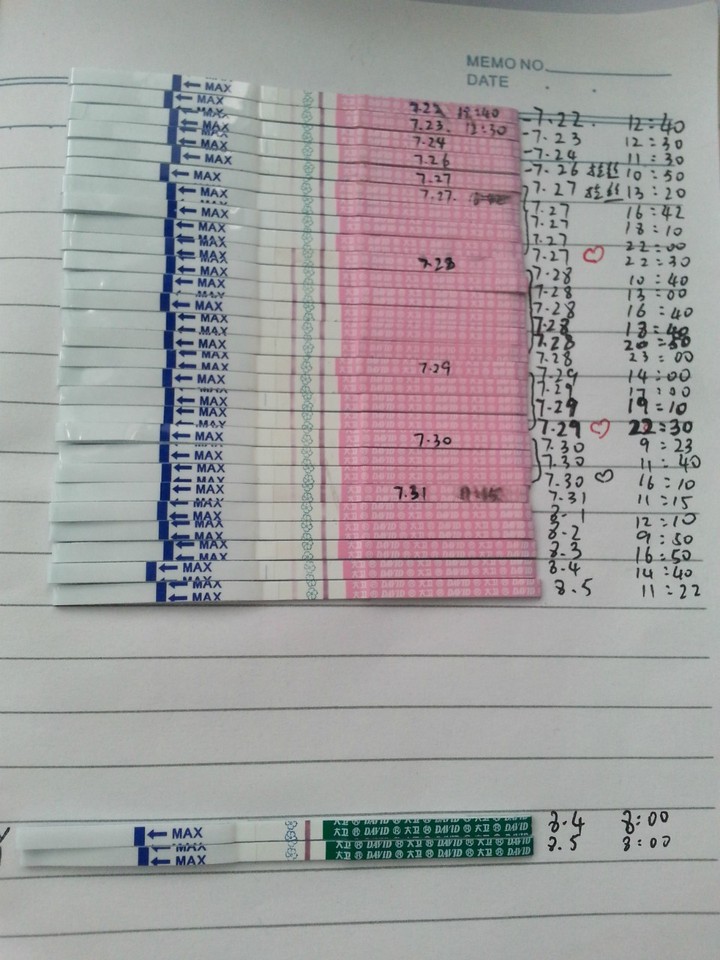 MEMO NO.
DATE
← MAX
7.22 12:40 -7.22. 12:40
7.23. 12:30 -7.23 12:30
7.24 -7.24 11:30
7.26 -7.26 10:50
7.27 7.27 13:20
7.27. 7.27 16:42
7.27 18:10
7.27 22:00
7.27 22:30
7.28 7.28 10:40
7.28 13:00
7.28 16:40
7.28 18:40
7.28
7.28 23:00
7.29 7.29 14:00
7.29 17:00
7.29 19:10
7.29 22:30
7.30 7.30 9:23
7.30 11:40
7.30 16:10
7.31 7.31 11:15
8.1 12:10
8.2 9:50
8.3 16:50
8.4 14:40
8.5 11:22
← MAX 大卫 ® DAVID ® 大卫 ® DAVID ® 大卫 ® DAVID 8.4 8:00
← MAX 大卫 ® DAVID ® 大卫 ® DAVID ® 大卫 ® DAVID 8.5 8:00